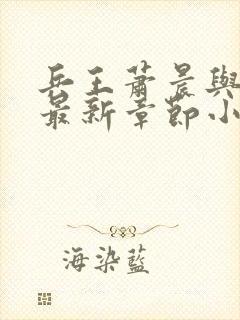 兵王蕭晨與
最新章節小
海染藍